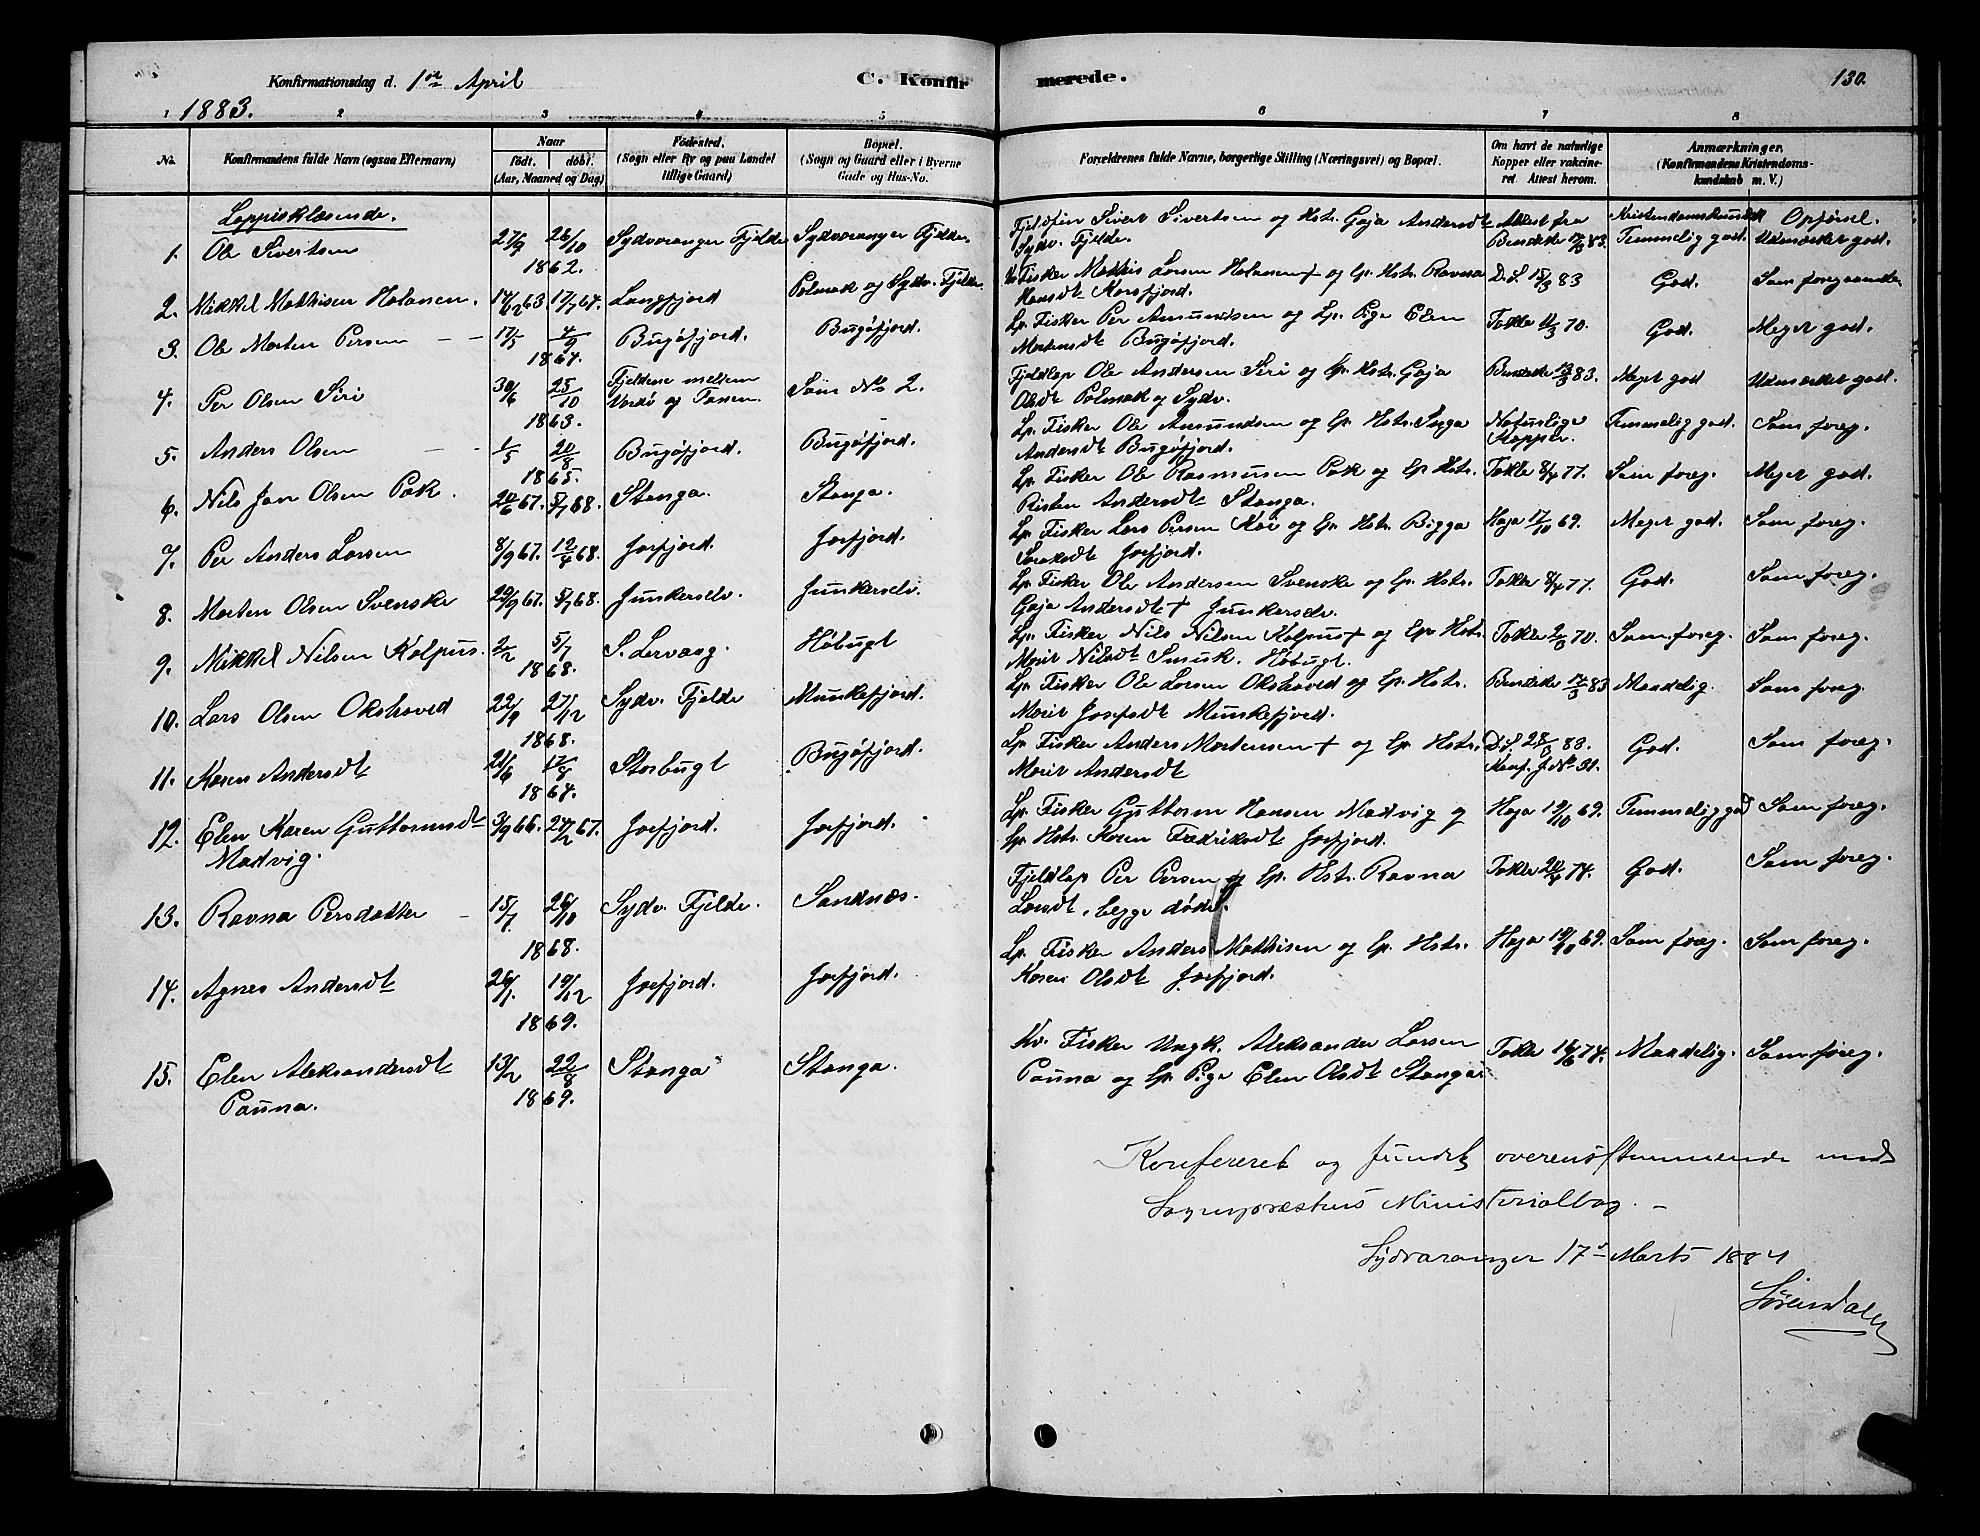 Konfirmationsdag d. 1ste April
C. Konfirmerede.
130.
1883.
1 2 3 4 5 6 7 8
No. Konfirmandens fulde Navn (ogsaa Efternavn) Naar født. døbt. (Aar, Maaned og Dag) Fødested. (Sogn eller By og paa Landet tillige Gaard) Bopæl. (Sogn og Gaard eller i Byerne Gade og Hus-No. Forældrenes fulde Navne, borgerlige Stilling (Næringsvei) og Bopæl. Om havt de naturlige Kopper eller vakcineret. Attest herom. Anmærkninger, (Konfirmandens Kristendomskundskab m. V.)
Lappisklæsende.
Kristendomskundsk. Opførsel.
1. Ole Sivertsen 27/9 26/10 1862. Sydvaranger Fjelde Sydvaranger Fjelde. Fjeldfin Sivert Sivertsen og Hstr. Gaja Andersdt Attest fra Temmelig god. Udmærket god.
Sydv. Fjelde.
2. Mikkel Mathisen Halonen. 14/12 63 17/7 64. Langfjord Polmak og Sydv. Fjelde. Kv. Fisker Mathis Larsen Halonen † og lp. Hstr. Ravna Do. 15/3 83 God. Som foregaaende
Hansdt Korsfjord.
3. Ole Morten Persen 17/5 4/9 1864. Bugøfjord. Bugøfjord. Lp. Fisker Per Amundsen og Lp. Pige Elen Tokle 11/3 70. God. Meget god.
Mortensdt Bugøfjord.
4. Per Olsen Siri 30/6 25/10 1863. Fjeldene mellem Vardø og Tanen. Som No 2. Fjeldlap Ole Andersen Siri og lp. Hstr. Gaja Meget god Udmærket god.
Olsdt Polmak og Sydv.
5. Anders Olsen 1/5 20/8 1865. Bugøfjord. Bugøfjord. Lp. Fisker Ole Amundsen og lp. Hstr. Inga Naturlige Kopper. Temmelig god. Som foreg.
Andersdt Bugøfjord.
6. Nils Jan Olsen Pok. 24/6 67. 5/7 68. Stonga. Stonga. Lp. Fisker Ole Rasmusen Pok og lp. Hstr. Tokle 8/4 77. Som foreg. Meget god.
Risten Andersdt Stonga.
7. Per Anders Larsen 8/9 67. 12/4 68. Jarfjord. Jarfjord. Lp. Fisker Lars Persen Koe og lp. Hstr. Bigga Haja 17/10 69. Meget god. Som foreg.
Jarfjord.
8. Morten Olsen Svenske 29/9 67. 5/7 68. Junkerselv. Junkerselv. Lp. Fisker Ole Andersen Svenske og lp. Hstr. Tokle 8/4 77. God. Som foreg.
Gaja Andersdt † Junkerselv.
9. Mikkel Nilsen Kolpus. 2/2 5/7 1868. S. Lervaag. Høbugt Lp. Fisker Nils Nilsen Kolpus † og lp. Hstr. Tokle 2/8 70. Som foreg. Som foreg.
Marit Nilsdt Smuk. Høbugt.
10. Lars Olsen Okshoved 22/9 27/12 1868. Sydv. Fjelde Munkefjord. Lp. Fisker Ole Larsen Okshoved og lp. Hstr. Maadelig. Som foreg.
Marit Josefsdt Munkefjord.
11. Karen Andersdt 21/6 17/8 1864. Storbugt Bugøfjord. Lp. Fisker Anders Mortensen † og lp. Hstr. God. Som foreg.
Marit Andersdt
12. Elen Karen Guttormsdt 3/9 66. 24/2 67. Jarfjord. Jarfjord. Lp. Fisker Guttorm Hansen Madvig og Haja 19/10 69. Temmelig god Som foreg.
Madvig. lp. Hstr. Karen Fredriksdt Jarfjord.
13. Ravna Persdatter 15/7 26/10 1868. Sydv. Fjelde. Sandnæs. Fjeldlap Per Persen og lp. Hstr. Ravna Tokle 20/4 74. God. Som foreg.
Larsdt, begge døde.
14. Agnes Andersdt 26/1. 19/12 1869. Jarfjord. Jarfjord. Lp. Fisker Anders Mathisen og lp. Hstr. Haja 19/10 69. Som foreg. Som foreg.
Karen Olsdt Jarfjord.
15. Elen Aleksandersdt 13/2 22/8 1869. Stonga Stonga. Kv. Fisker Ungk. Aleksander Larsen Tokle 16/6 74. Maadelig. Som foreg.
Pauna. Pauna og lp. Pige Elen Olsdt Stonga.
Konfereret og fundet overensstemmende med
Sognepræstens Ministerialbog. –
Sydvaranger 17de Marts 1884